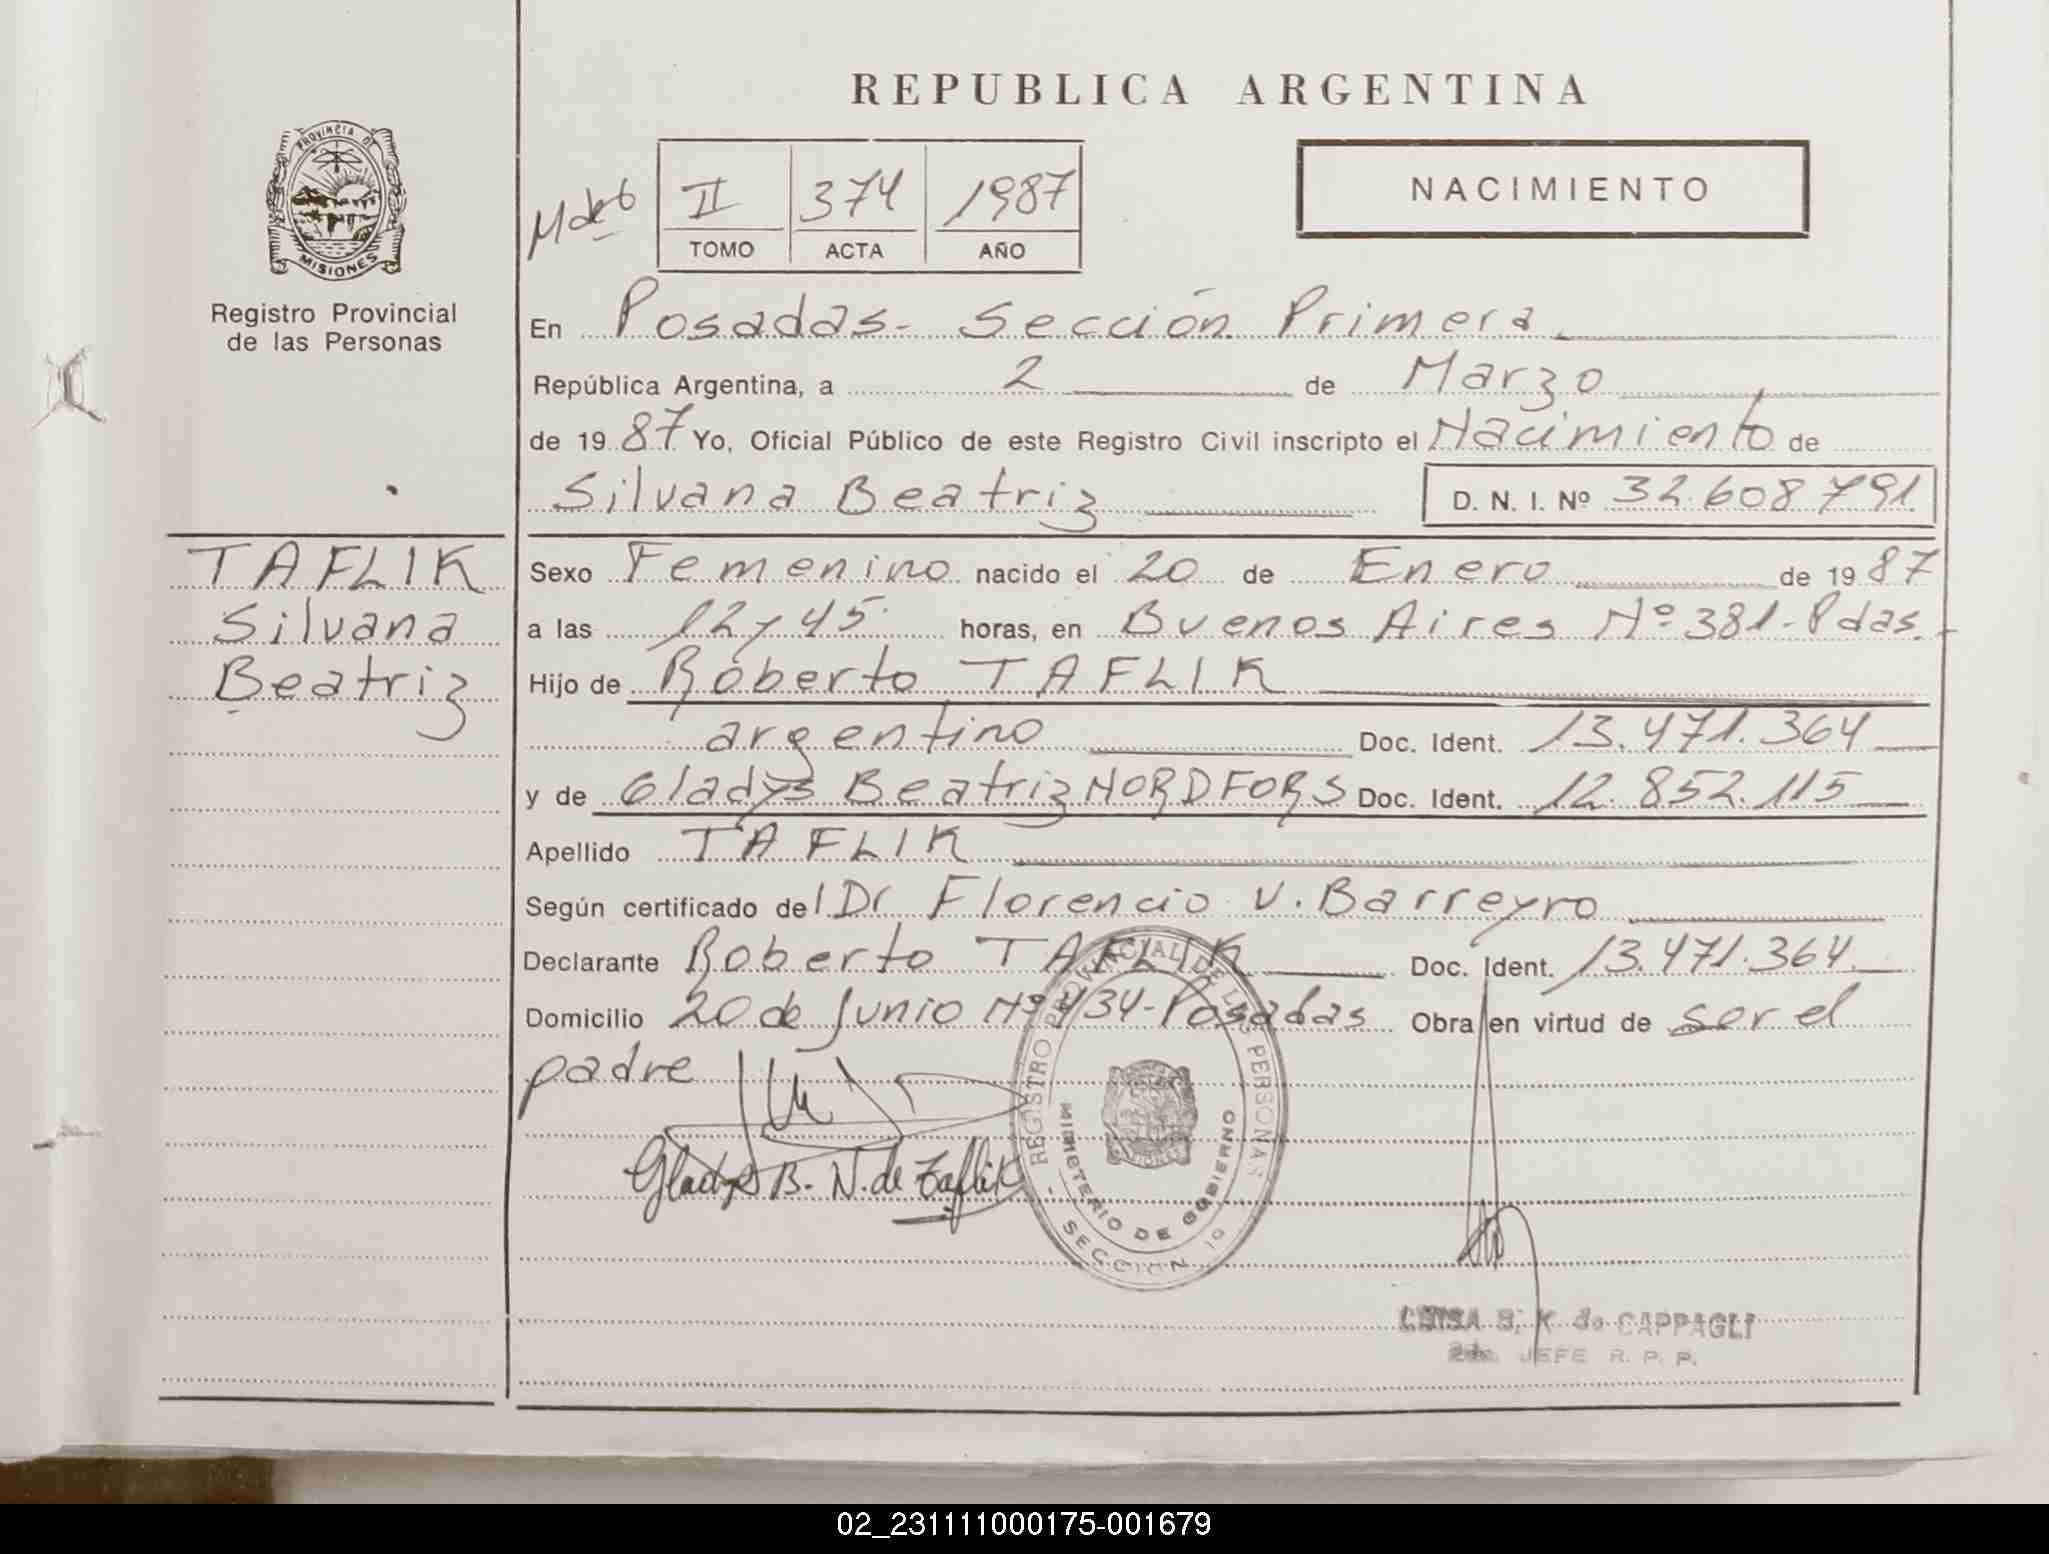 REPUBLICA ARGENTINA
PROVINCIA DE
MISIONES
Registro Provincial
de las Personas
II 374 1987
TOMO ACTA AÑO
NACIMIENTO
En Posadas- Sección Primera
República Argentina, a 2 de Marzo
de 1987 Yo, Oficial Público de este Registro Civil inscripto el Nacimiento de
Silvana Beatriz D. N. I. Nº 32.608.791.
TAFLIK
Silvana
Beatriz
Sexo Femenino nacido el 20 de Enero de 1987
a las 12 y 45 horas, en Buenos Aires Nº 381-Pdas.
Hijo de Roberto TAFLIK
argentino Doc. Ident. 13.471.364
y de Gladys Beatriz NORDFORS Doc. Ident. 12.852.115
Apellido TAFLIK
Según certificado del Dr Florencio V. Barreyro
Declarante Roberto TAFLIK Doc. Ident. 13.471.364
Domicilio 20 de Junio Nº 434-Posadas Obra en virtud de ser el
padre
Gladys B. N. de Taflik
REGISTRO PROVINCIAL DE LAS PERSONAS
MINISTERIO DE GOBIERNO
SECCION 1º
S. K. de CAPPAGLI
JEFE R. P. P.
02_231111000175-001679